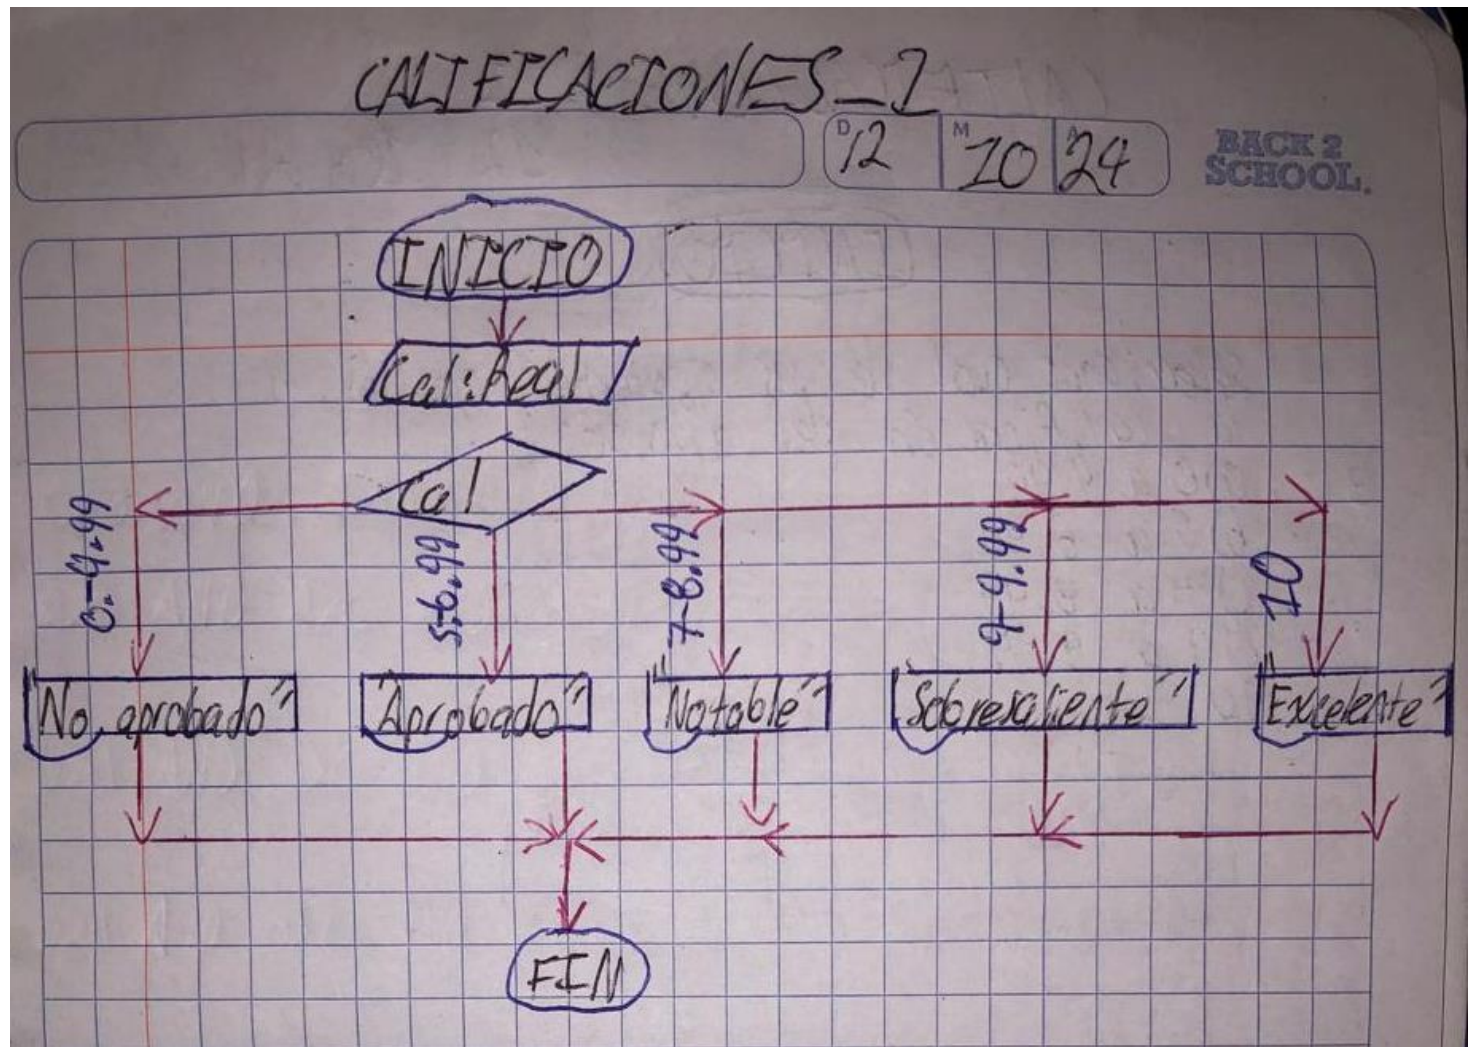 CALIFICACIONES_1
D 12 M 10 A 24
BACK 2
SCHOOL.
INICIO
Cal:Real
Cal
0.-4.99
5-6.99
7-8.99
9-9.99
10
"No aprobado"
"Aprobado"
"Notable"
"Sobresaliente"
"Excelente"
FIN